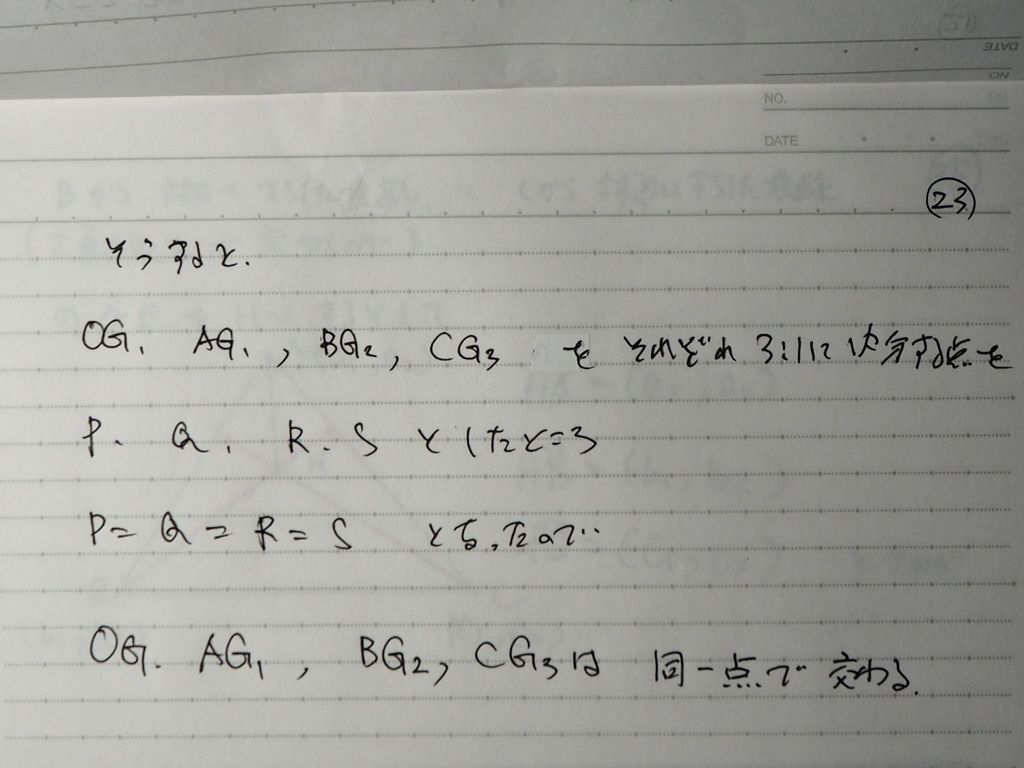 NO.
DATE
㉓
そうすると.
OG, AG₁, BG₂, CG₃ を それぞれ 3:1に内分する点を
P. Q. R. S としたところ
P=Q=R=S となったので
OG. AG₁, BG₂, CG₃は 同一点で 交わる.